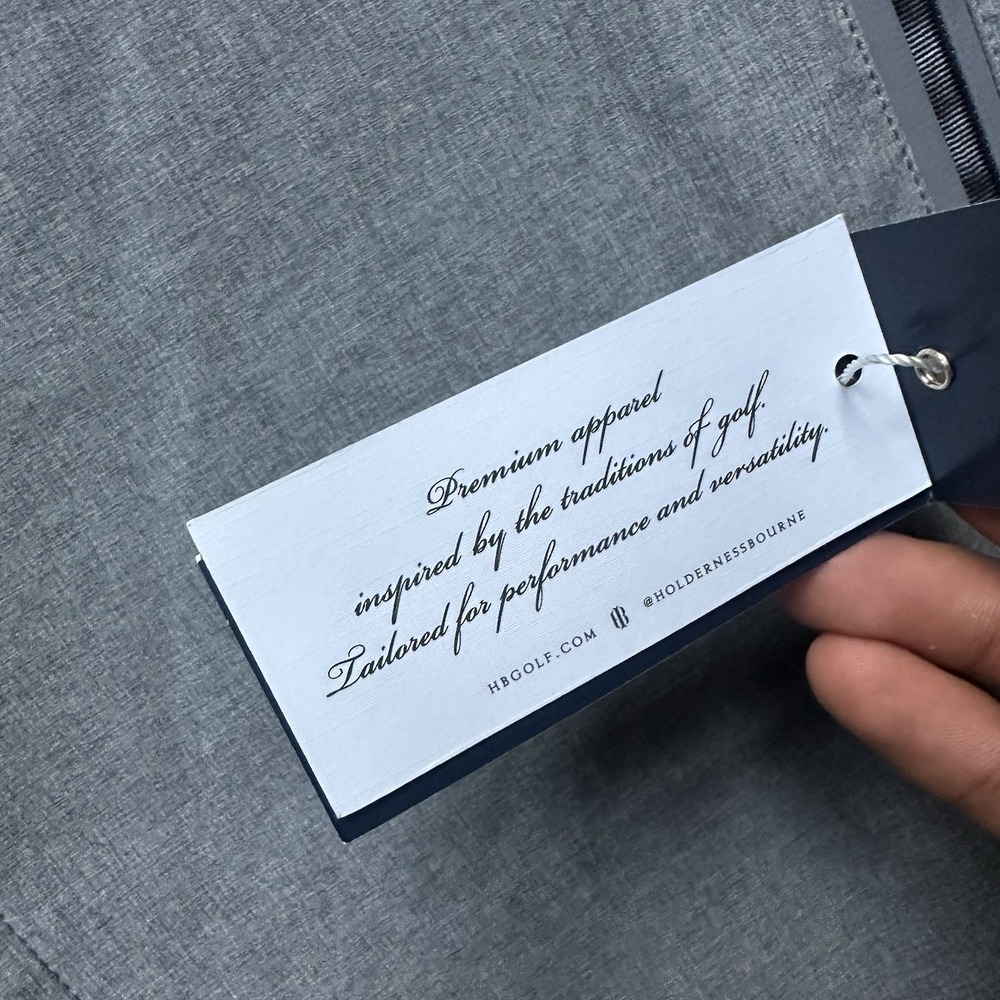 Premium apparel
inspired by the traditions of golf.
Tailored for performance and versatility.
HBGOLF.COM HB @HOLDERNESSBOURNE